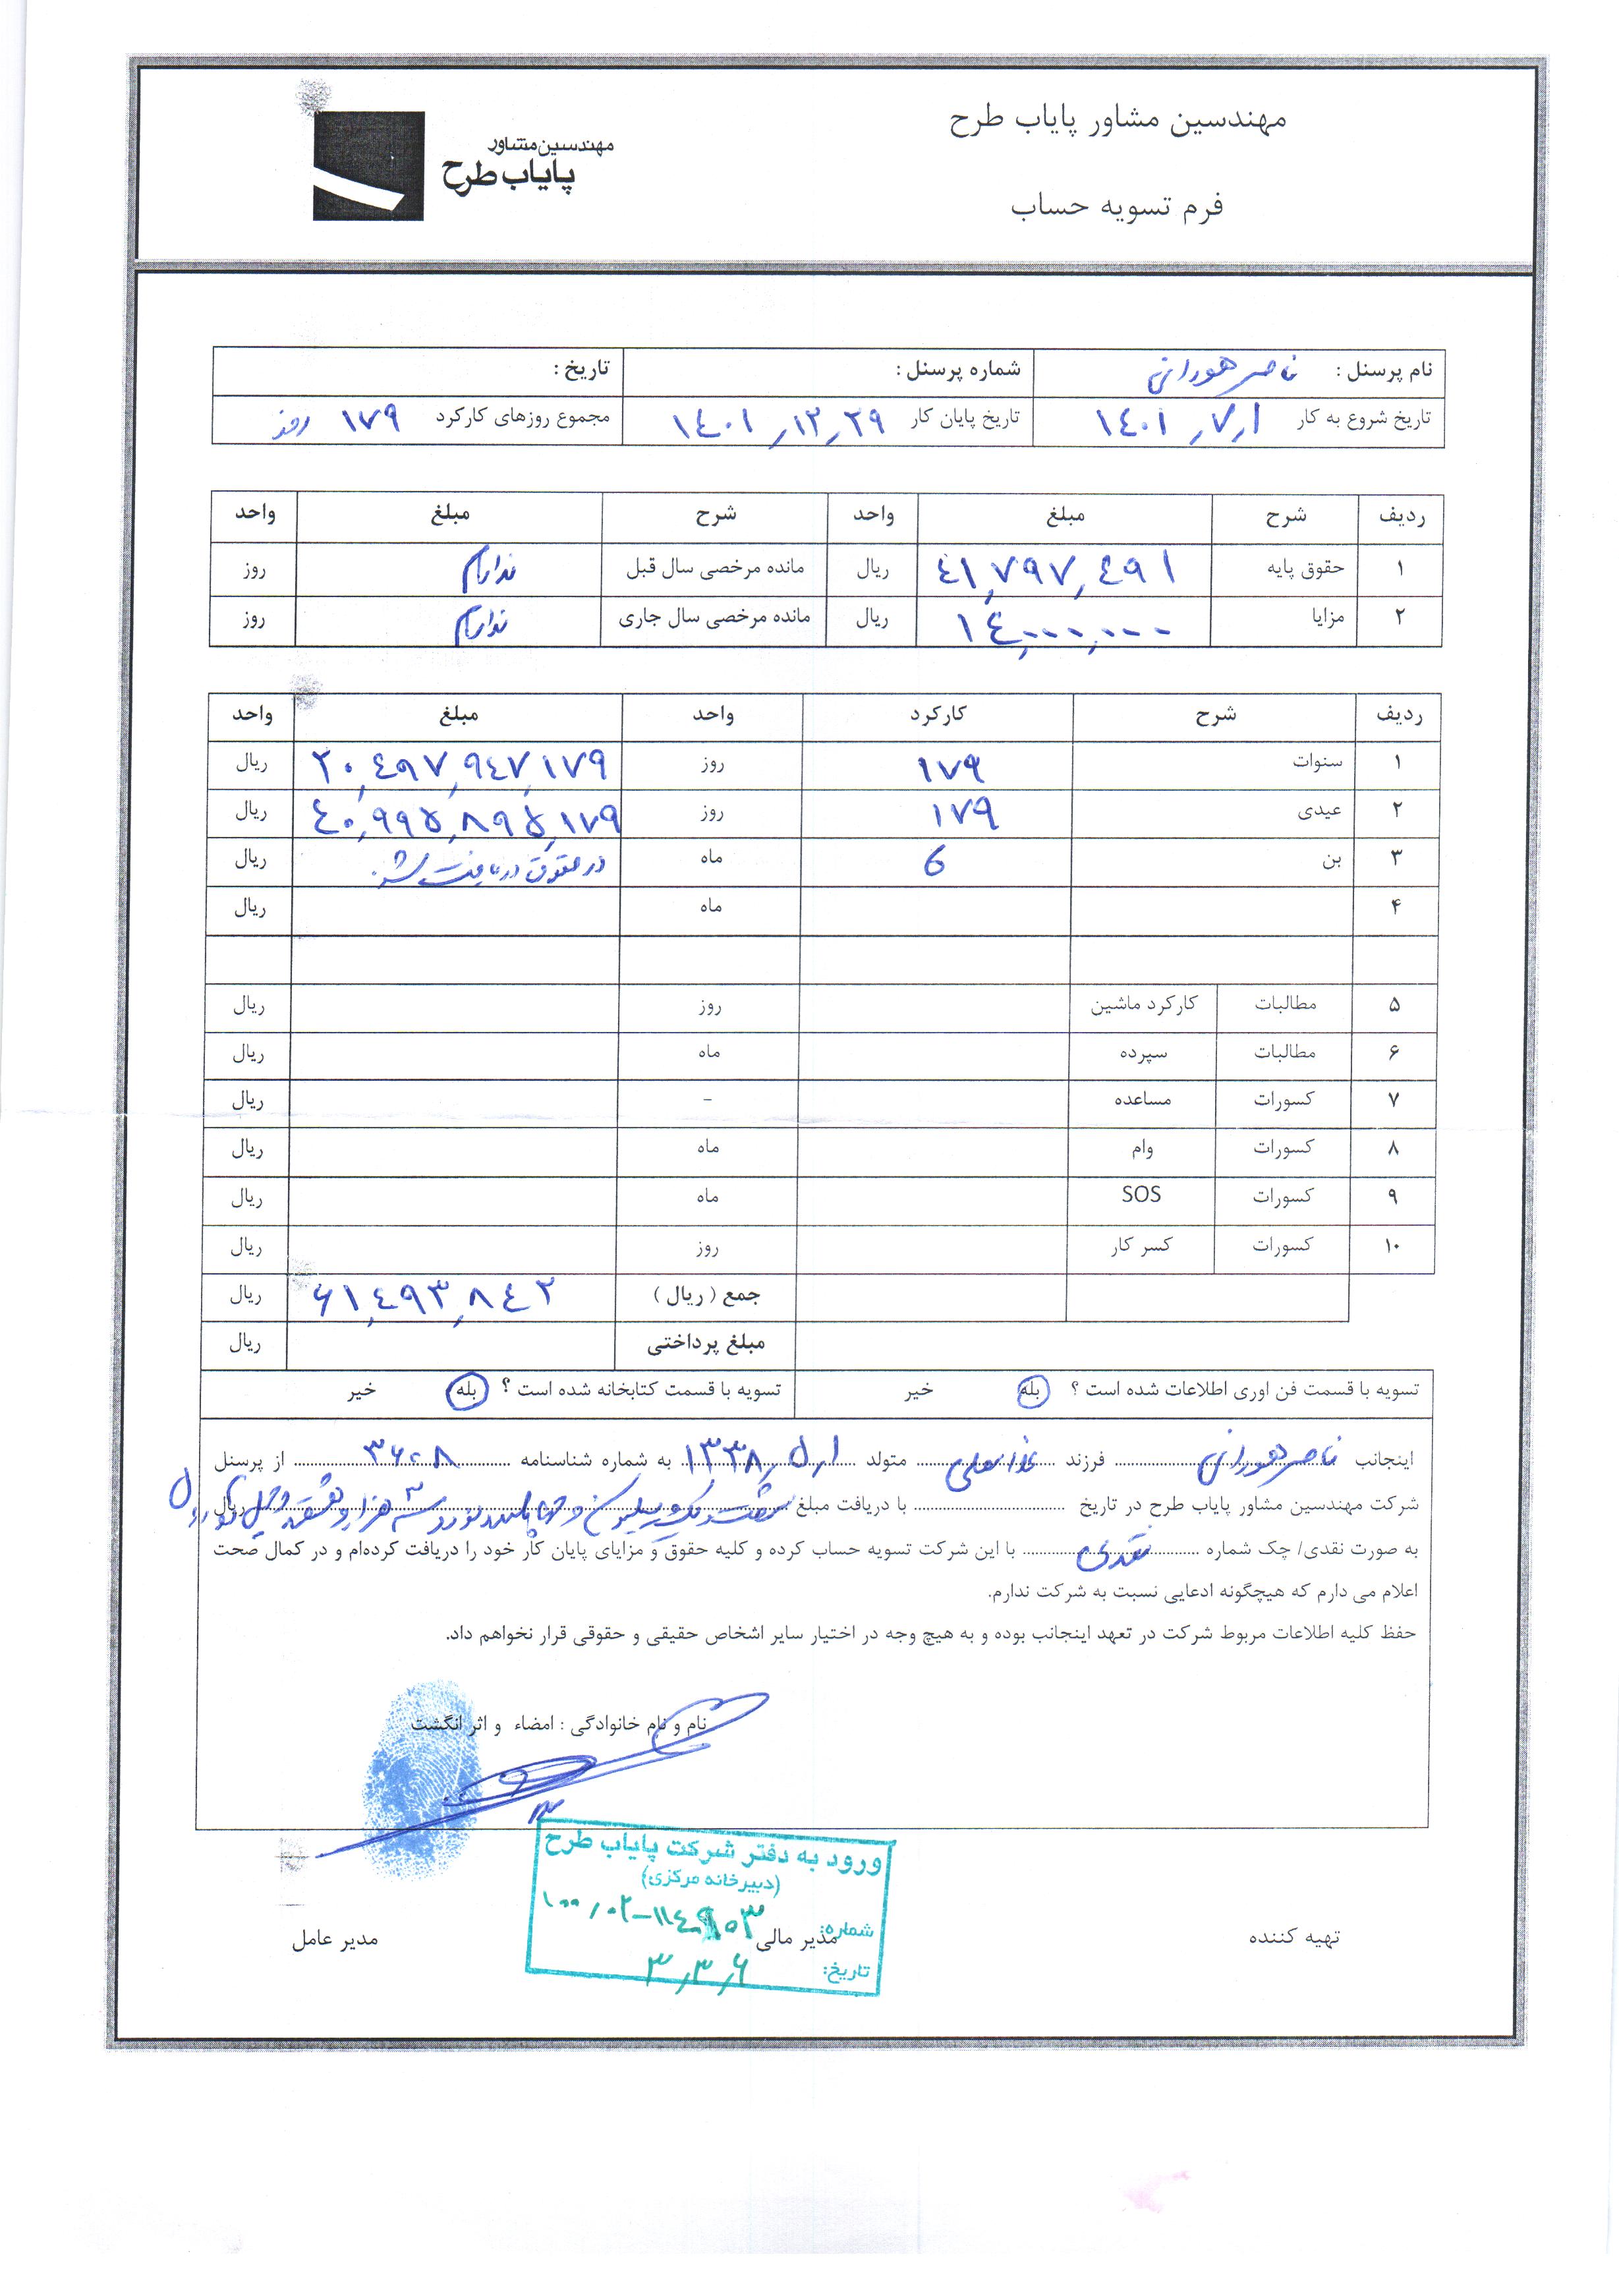 مهندسین مشاور پایاب طرح
مهندسین مشاور
پایاب طرح
فرم تسویه حساب
نام پرسنل : ناصر هورانی شماره پرسنل : تاریخ :
تاریخ شروع به کار ۱۴۰۱/۷/۱ تاریخ پایان کار ۱۴۰۱/۱۲/۲۹ مجموع روزهای کارکرد ۱۷۹ روز
ردیف شرح مبلغ واحد شرح مبلغ واحد
۱ حقوق پایه ۴۱,۷۹۷,۴۹۱ ریال مانده مرخصی سال قبل ندارم روز
۲ مزایا ۱۴,۰۰۰,۰۰۰ ریال مانده مرخصی سال جاری ندارم روز
ردیف شرح کارکرد واحد مبلغ واحد
۱ سنوات ۱۷۹ روز ۲۰,۴۹۷,۹۴۷,۱۷۹ ریال
۲ عیدی ۱۷۹ روز ۴۰,۹۹۵,۸۹۵,۱۷۹ ریال
۳ بن 6 ماه در حقوق دریافت شد. ریال
۴ ماه ریال
۵ مطالبات کارکرد ماشین روز ریال
۶ مطالبات سپرده ماه ریال
۷ کسورات مساعده - ریال
۸ کسورات وام ماه ریال
۹ کسورات SOS ماه ریال
۱۰ کسورات کسر کار روز ریال
جمع ( ریال ) ۶۱,۴۹۳,۸۴۲ ریال
مبلغ پرداختی ریال
تسویه با قسمت فن اوری اطلاعات شده است ؟ بله خیر تسویه با قسمت کتابخانه شده است ؟ بله خیر
اینجانب ناصر هورانی فرزند متولد ۱۳۳۸ به شماره شناسنامه ۳۶۰۸ از پرسنل
شرکت مهندسین مشاور پایاب طرح در تاریخ با دریافت مبلغ ریال
به صورت نقدی/ چک شماره نقدی با این شرکت تسویه حساب کرده و کلیه حقوق و مزایای پایان کار خود را دریافت کرده‌ام و در کمال صحت
اعلام می دارم که هیچگونه ادعایی نسبت به شرکت ندارم.
حفظ کلیه اطلاعات مربوط شرکت در تعهد اینجانب بوده و به هیچ وجه در اختیار سایر اشخاص حقیقی و حقوقی قرار نخواهم داد.
نام و نام خانوادگی : امضاء و اثر انگشت
ورود به دفتر شرکت پایاب طرح
(دبیرخانه مرکزی)
شماره:
تهیه کننده مدیر مالی مدیر عامل
تاریخ: ۳/۳/۶